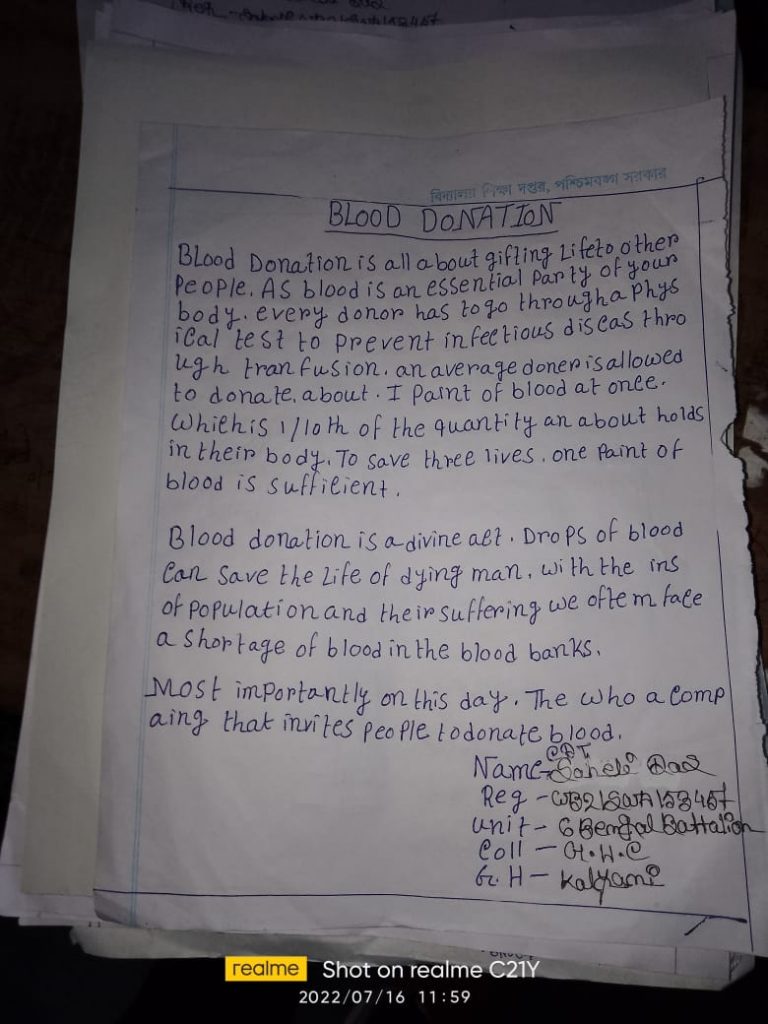 বিদ্যালয় শিক্ষা দপ্তর, পশ্চিমবঙ্গ সরকার
BLOOD DONATION
Blood Donation is all about gifting Life to other
People. AS blood is an essential Party of your
body. every donor has to go through a Phys
ical test to prevent infectious diseas thro
ugh tranfusion. an average doner is allowed
to donate. about. I Paint of blood at once.
Which is 1/10th of the quantity an about holds
in their body. To save three lives. one Paint of
blood is sufficient.
Blood donation is a divine act. Drops of blood
Can save the Life of dying man. with the ins
of Population and their suffering we oftem face
a shortage of blood in the blood banks.
Most importantly on this day. The who a Comp
aing that invites people to donate blood.
CDT
Name-Saheli Das
Reg - WB21SWA153467
unit - 6 Bengal Battalion
Coll - G.H.C
G.H - Kalyani
realme Shot on realme C21Y
2022/07/16 11:59